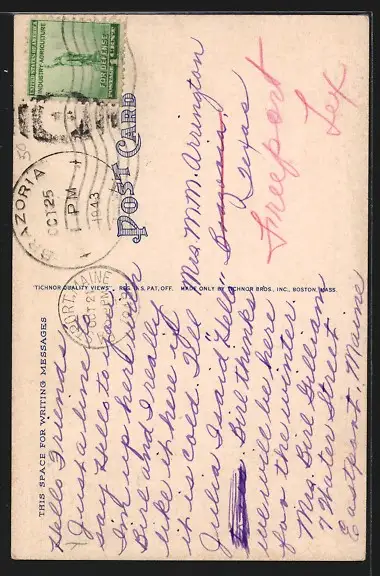 THIS SPACE FOR WRITING MESSAGES
Hello Friends
Just a line to
say Hello to you.
I'm up here with
Bill and I really
like it here if
it is cold. Tell
Julia I said "Hello"
Bill thinks
we will be here
for the winter
Mrs. Bill Gilliam
7 Water Street
Eastport, Maine
TICHNOR QUALITY VIEWS REG. U.S. PAT. OFF. MADE ONLY BY TICHNOR BROS., INC., BOSTON, MASS.
POST CARD
UNITED STATES OF AMERICA
INDUSTRY AGRICULTURE
FOR DEFENSE
1¢
BRAZORIA
OCT 25
PM
1943
EASTPORT, MAINE
OCT 21
PM
Mrs. M.M. Arrington
Brazoria
Texas
Freeport
Tex
30